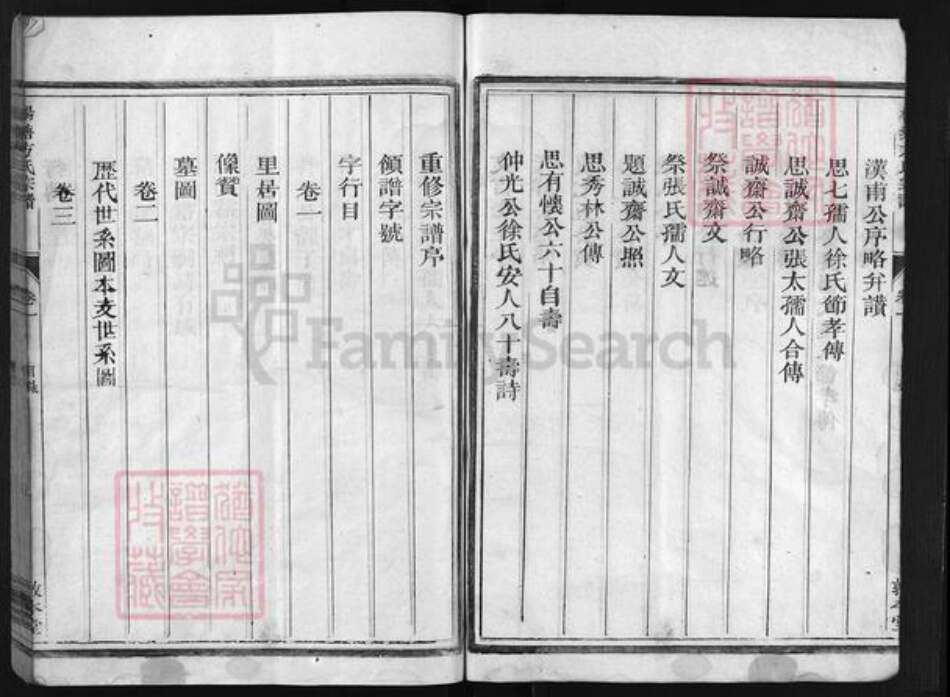 漢甫公序略弁讃
思七孺人徐氏節孝傳
思誠齋公張太孺人合傳
誠齋公行略
祭誠齋文
祭張氏孺人文
題誠齋公照
思秀林公傳
思有懷公六十自壽
仲光公徐氏安人八十壽詩
重修宗譜序
領譜字號
字行目
卷一
里居圖
像贊
墓圖
卷二
歷代世系圖本支世系圖
卷三
FamilySearch